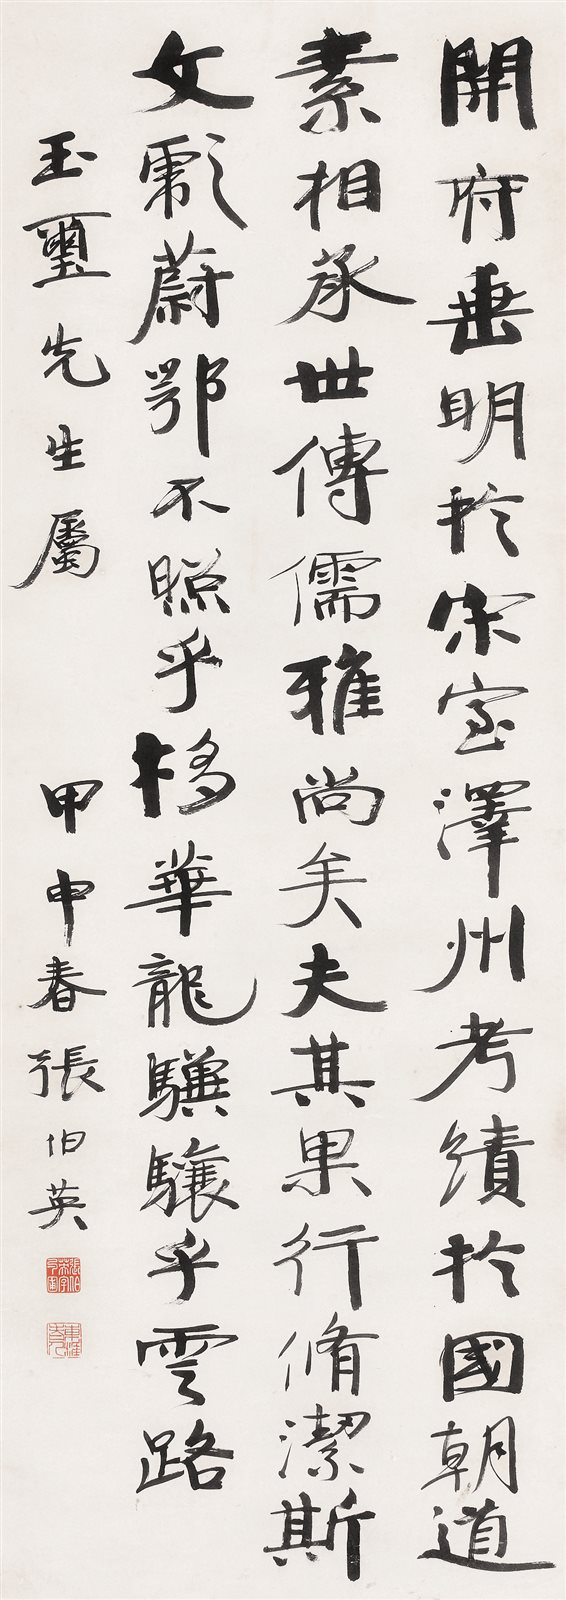 開府垂明於宋室澤州考績於國朝道
素相承世傳儒雅尚矣夫其果行脩潔斯
文彪蔚鄂不照乎棣華龍驥驤乎雲路
玉璽先生屬
甲申春張伯英